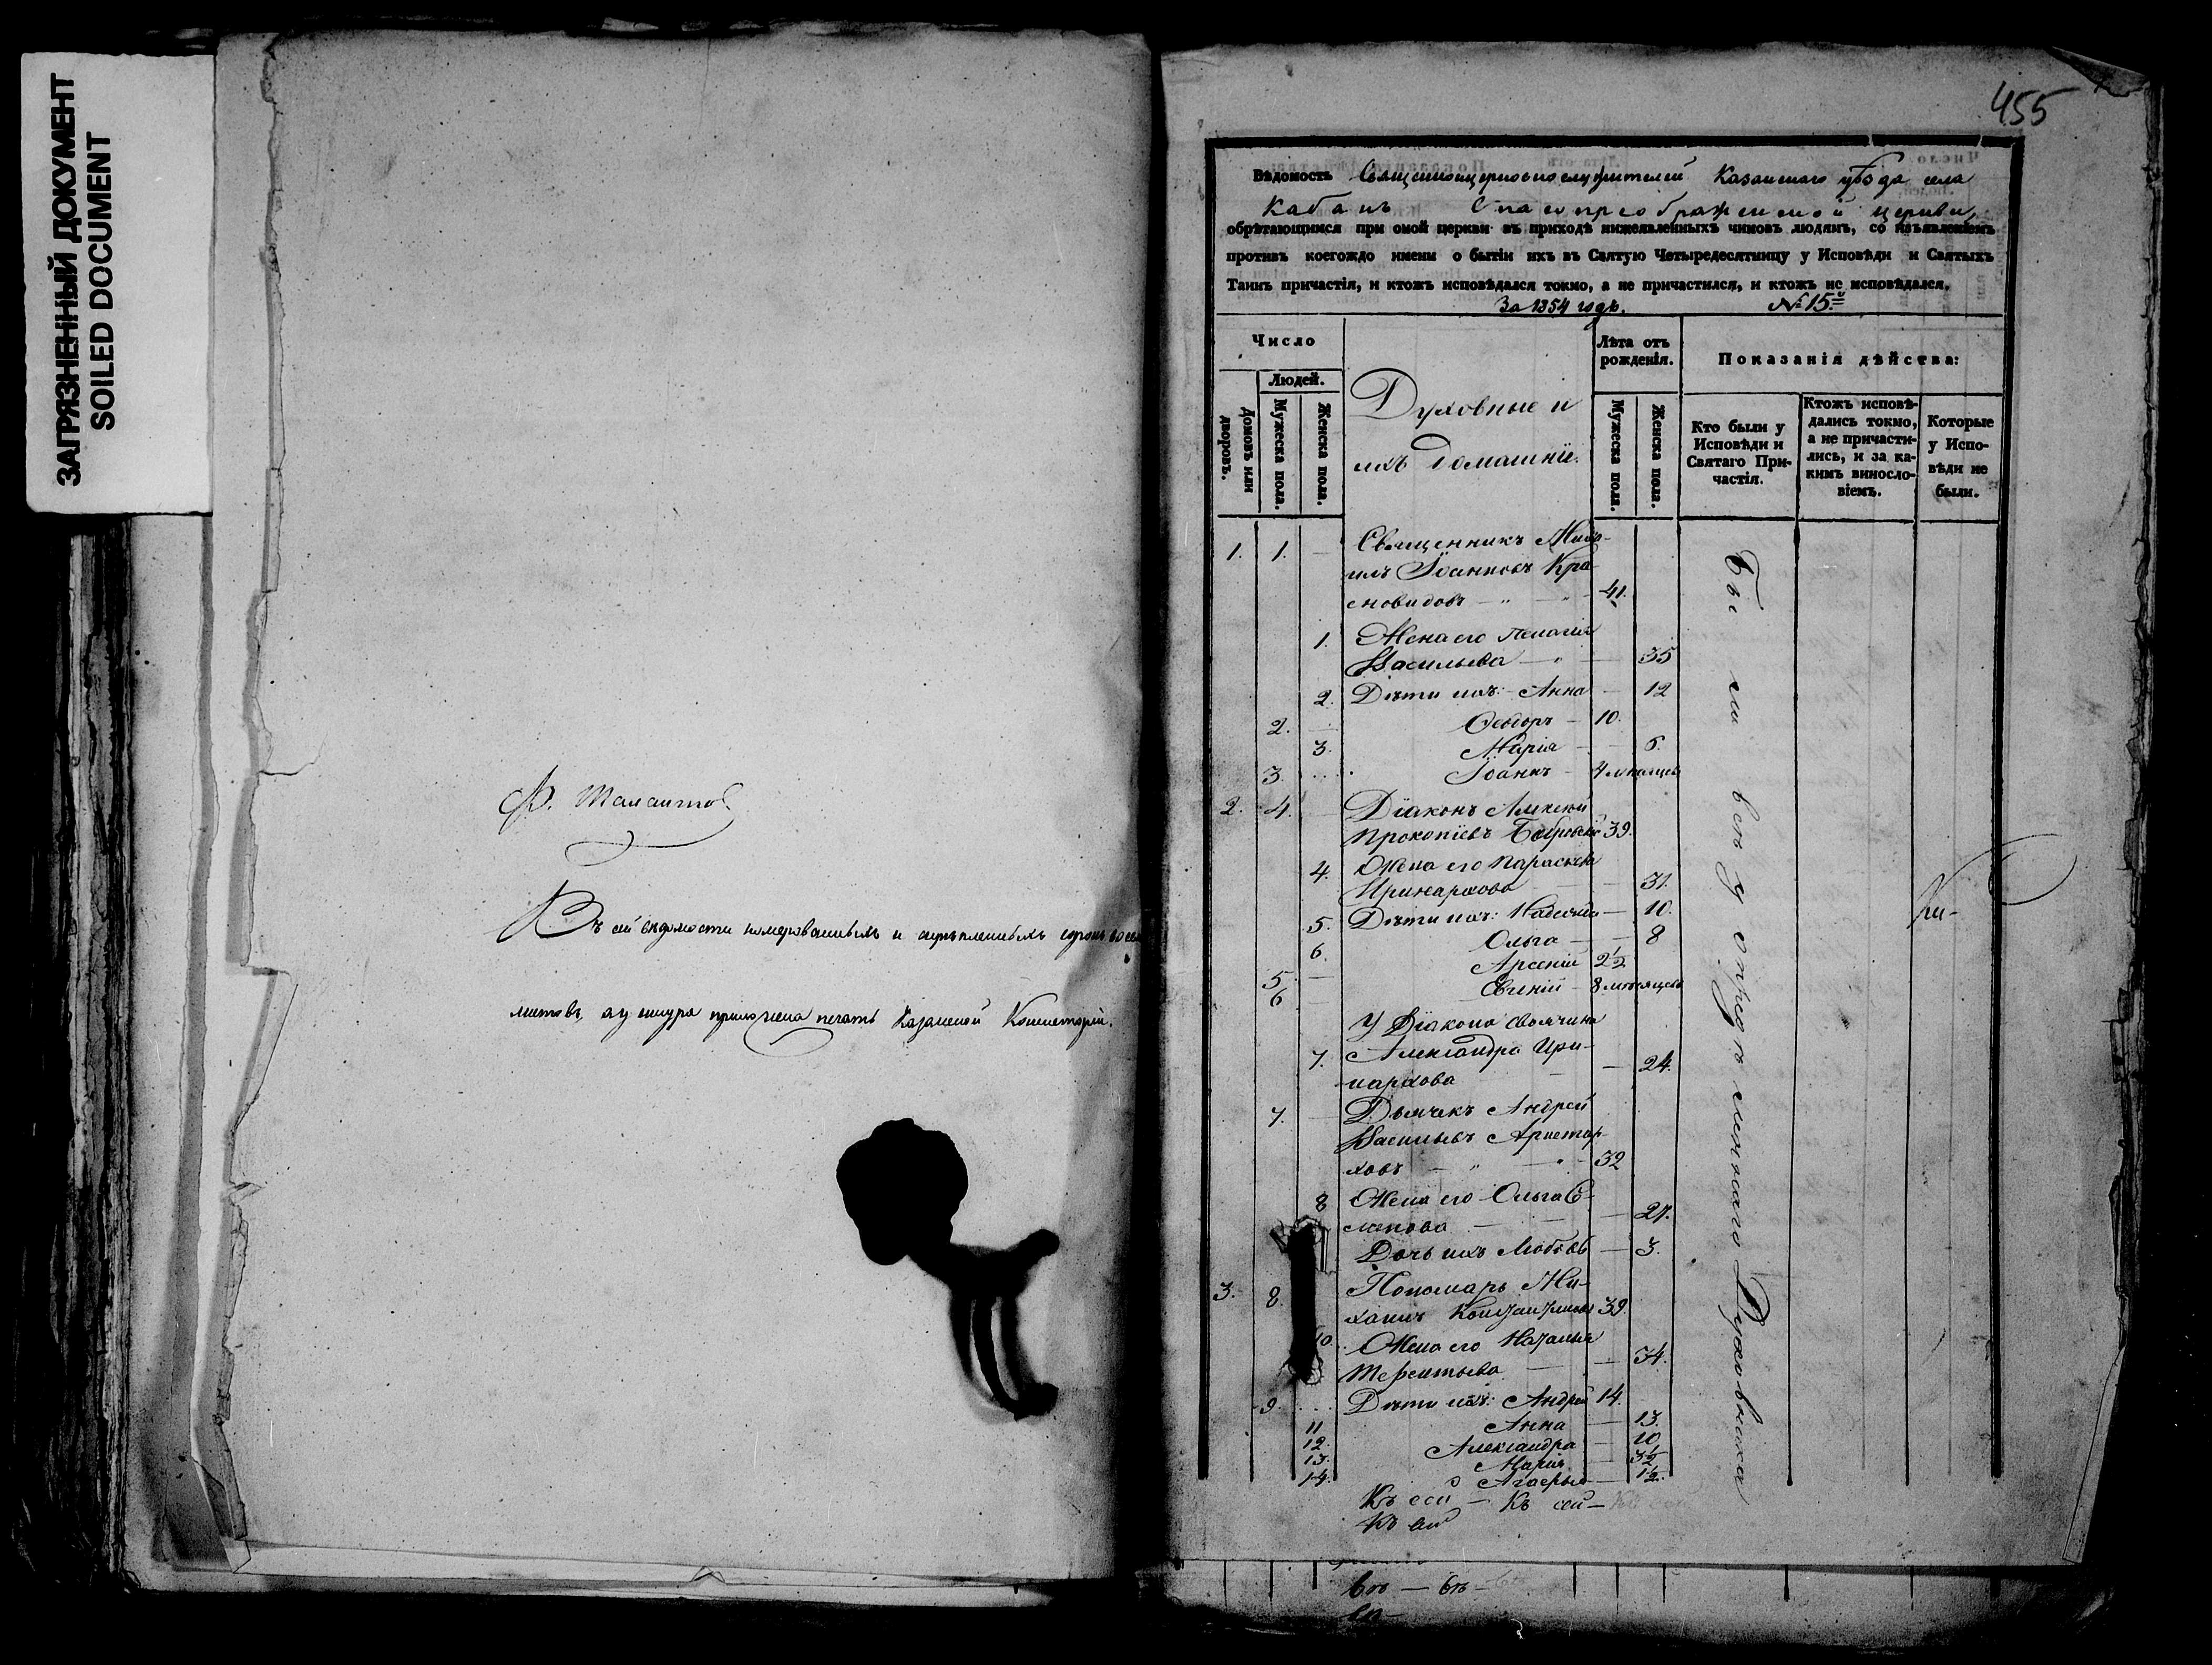 ЗАГРЯЗНЕННЫЙ ДОКУМЕНТ
SOILED DOCUMENT
Въ сей вѣдомости номерованныхъ и скрѣпленныхъ сорокъ
листовъ, а у шнура приложена печать Казанской Консисторіи.
455
Вѣдомость Священноцерковнослужителей Казанскаго уѣзда села
Кабанъ Спасопреображенской церкви,
обрѣтающимся при оной церкви въ приходѣ нижеявленныхъ чиновъ людямъ, со изъявленіемъ
противъ коегождо имени о бытіи ихъ въ Святую Четыредесятницу у Исповѣди и Святыхъ
Таинъ причастія, и ктожъ исповѣдался токмо, а не причастился, и ктожъ не исповѣдался.
За 1854 годъ. № 15й
Число
Людей.
Домовъ или дворовъ.
Мужеска пола.
Женска пола.
Духовные и
ихъ домашніе.
Лѣта отъ
рожденія.
Мужеска пола.
Женска пола.
Показанія дѣйства:
Кто были у
Исповѣди и
Святаго При-
частія.
Ктожъ исповѣ-
дались токмо,
а не причасти-
лись, и за ка-
кимъ виносло-
віемъ.
Которые
у Испо-
вѣди не
были.
1. 1. Священникъ Миха-
илъ Іоанновъ Кра-
сновидовъ 41.
1. Жена его Пелагія
Васильева 35
2. Дѣти ихъ: Анна 12
2. Ѳеодоръ 10.
3. Марія 6.
3. Іоаннъ 4 мѣсяцевъ
2. 4. Діаконъ Алексій
Прокопіевъ 39.
4. Жена его Параскева
Иринархова 31.
5. Дѣти ихъ: Надежда 10.
6. Ольга 8
5. Арсеній 2½
6 Евгеній 8 мѣсяцевъ
У Діакона своячина
7. Александра Ири-
нархова 24.
7. Дьячекъ Андрей
Васильевъ Аристар-
ховъ 32
8 Жена его Ольга С-
менова 27.
Дочь ихъ Любовь 3.
3. 8. Пономарь Ми-
хаилъ Константиновъ 39.
10. Жена его Наталья
Терентьева 34.
9. Дѣти ихъ: Андрей 14.
11 Анна 13.
12. Александра 10
13. Марія 3½
14. 1½
Были всѣ у опредѣленнаго Духовника
Къ сей — Къ сей —
Къ сей